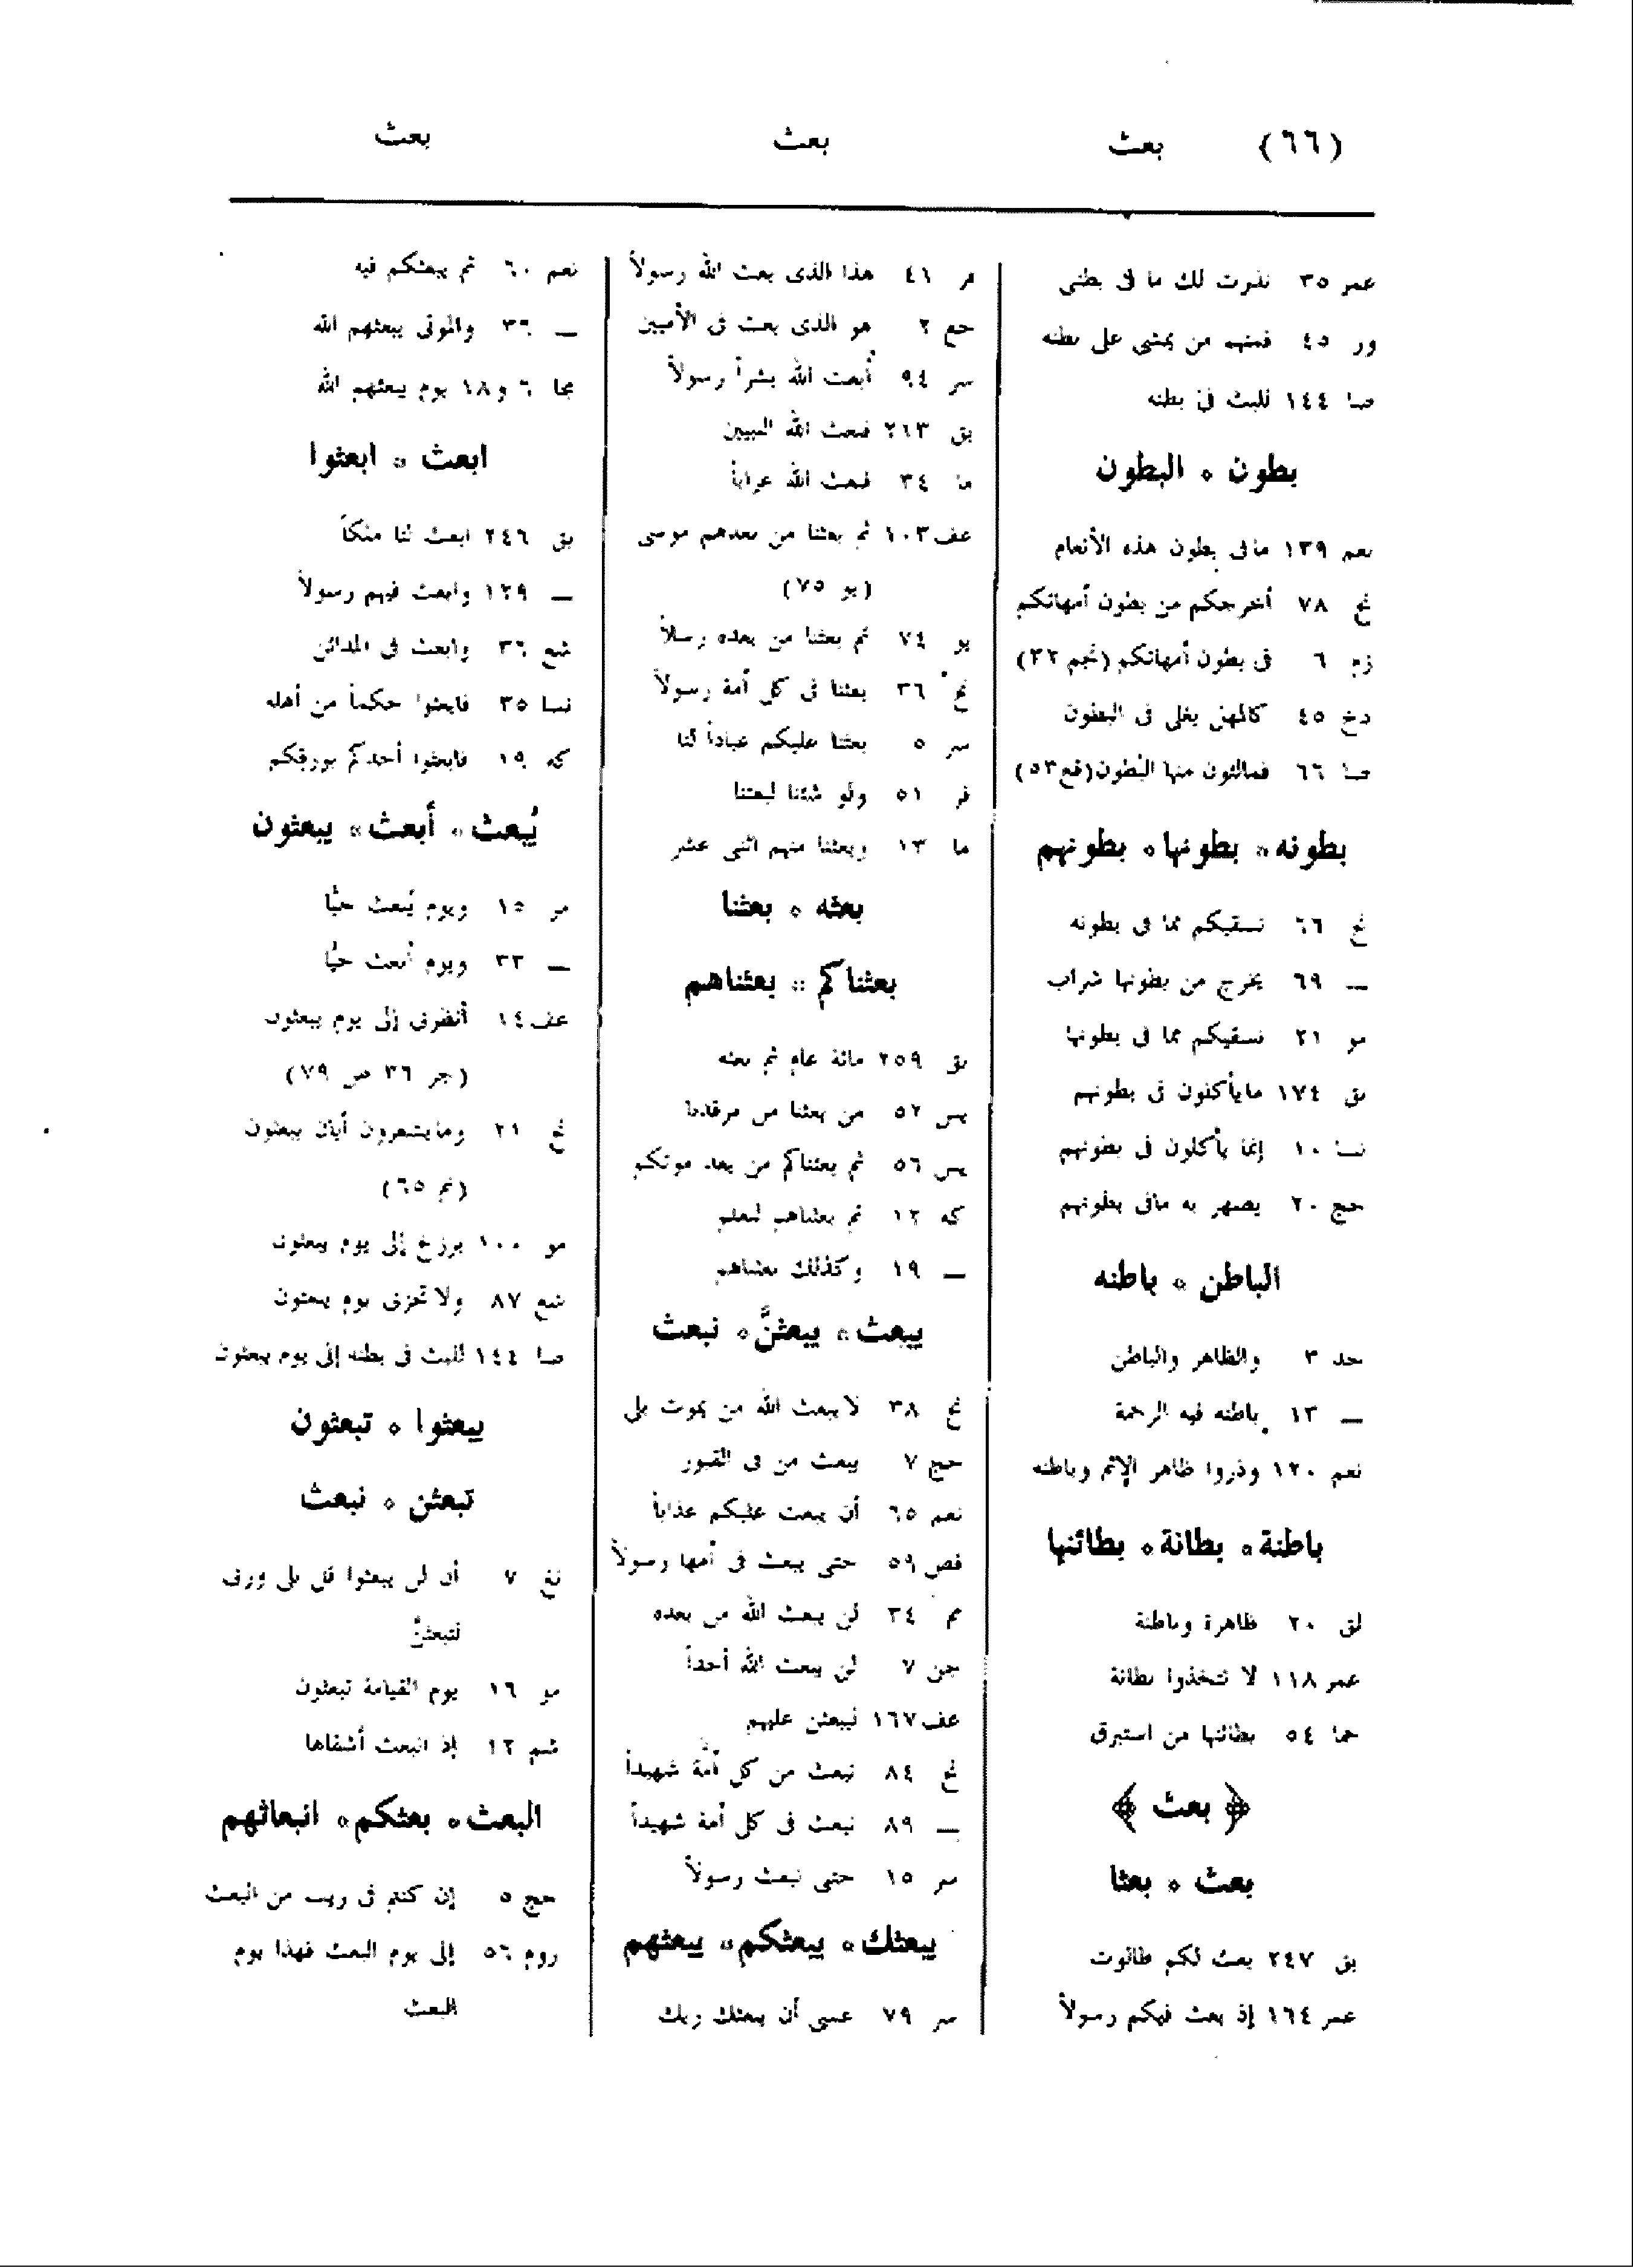 (٦٦) بعث
بعث
بعث
عمر ٣٥ نذرت لك ما فى بطنى
ور ٤٥ فمنهم من يمشى على بطنه
صا ١٤٤ للبث فى بطنه
بطون * البطون
نعم ١٣٩ مافى بطون هذه الأنعام
نح ٧٨ أخرجكم من بطون أمهاتكم
زم ٦ فى بطون أمهاتكم (نجم ٣٢)
دخ ٤٥ كالمهل يغلى فى البطون
صا ٦٦ فمالئون منها البطون (قع ٥٣)
بطونه * بطونها * بطونهم
نح ٦٦ نسقيكم مما فى بطونه
— ٦٩ يخرج من بطونها شراب
مو ٢١ نسقيكم مما فى بطونها
بق ١٧٤ مايأكلون فى بطونهم
نسا ١٠ إنما يأكلون فى بطونهم
حج ٢٠ يصهر به مافى بطونهم
الباطن * باطنه
حد ٣ والظاهر والباطن
— ١٣ باطنه فيه الرحمة
نعم ١٢٠ وذروا ظاهر الإثم وباطنه
باطنة * بطانة * بطائنها
لق ٢٠ ظاهرة وباطنة
عمر ١١٨ لا تتخذوا بطانة
حما ٥٤ بطائنها من استبرق
﴿ بعث ﴾
بعث * بعثا
بق ٢٤٧ بعث لكم طالوت
عمر ١٦٤ إذ بعث فيكم رسولاً
فر ٤١ هذا الذى بعث الله رسولاً
جمع ٢ هو الذى بعث فى الأميين
سر ٩٤ أبعث الله بشراً رسولاً
بق ٢١٣ فبعث الله النبيين
ما ٣٤ فبعث الله غراباً
عف ١٠٣ ثم بعثنا من بعدهم موسى
(يو ٧٥)
يو ٧٤ ثم بعثنا من بعده رسلاً
نح ٣٦ بعثنا فى كل أمة رسولاً
سر ٥ بعثنا عليكم عباداً لنا
فر ٥١ ولو شئنا لبعثنا
ما ١٣ وبعثنا منهم اثنى عشر
بعثه * بعثنا
بعثناكم * بعثناهم
بق ٢٥٩ مائة عام ثم بعثه
يس ٥٢ من بعثنا من مرقدنا
بس ٥٦ ثم بعثناكم من بعد موتكم
كه ١٢ ثم بعثناهم لنعلم
— ١٩ وكذلك بعثناهم
يبعث * يبعثنَّ * نبعث
نح ٣٨ لا يبعث الله من يموت بلى
حج ٧ يبعث من فى القبور
نعم ٦٥ أن يبعث عليكم عذاباً
قص ٥٩ حتى يبعث فى أمها رسولاً
مم ٣٤ لن يبعث الله من بعده
جن ٧ لن يبعث الله أحداً
عف ١٦٧ ليبعثن عليهم
نح ٨٤ نبعث من كل أمة شهيداً
— ٨٩ نبعث فى كل أمة شهيداً
سر ١٥ حتى نبعث رسولاً
يبعثك * يبعثكم * يبعثهم
سر ٧٩ عسى أن يبعثك ربك
نعم ٦٠ ثم يبعثكم فيه
— ٣٦ والموتى يبعثهم الله
مجا ٦ و ١٨ يوم يبعثهم الله
ابعث * ابعثوا
بق ٢٤٦ ابعث لنا ملكاً
— ١٢٩ وابعث فيهم رسولاً
شع ٣٦ وابعث فى المدائن
نسا ٣٥ فابعثوا حكماً من أهله
كه ١٩ فابعثوا أحدكم بورقكم
يُبعث * أُبعث * يبعثون
مر ١٥ ويوم يُبعث حيًّا
— ٣٣ ويوم أبعث حيًّا
عف ١٤ أنظرنى إلى يوم يبعثون
(حجر ٣٦ ص ٧٩)
نح ٢١ ومايشعرون أيان يبعثون
(نم ٦٥)
مو ١٠٠ برزخ إلى يوم يبعثون
شع ٨٧ ولا تخزنى يوم يبعثون
صا ١٤٤ للبث فى بطنه إلى يوم يبعثون
يبعثوا * تبعثون
تبعثن * نبعث
تغ ٧ أن لن يبعثوا قل بلى وربى
لتبعثنَّ
مو ١٦ يوم القيامة تبعثون
شم ١٢ إذ انبعث أشقاها
البعث * بعثكم * انبعاثهم
حج ٥ إن كنتم فى ريب من البعث
روم ٥٦ إلى يوم البعث فهذا يوم
البعث